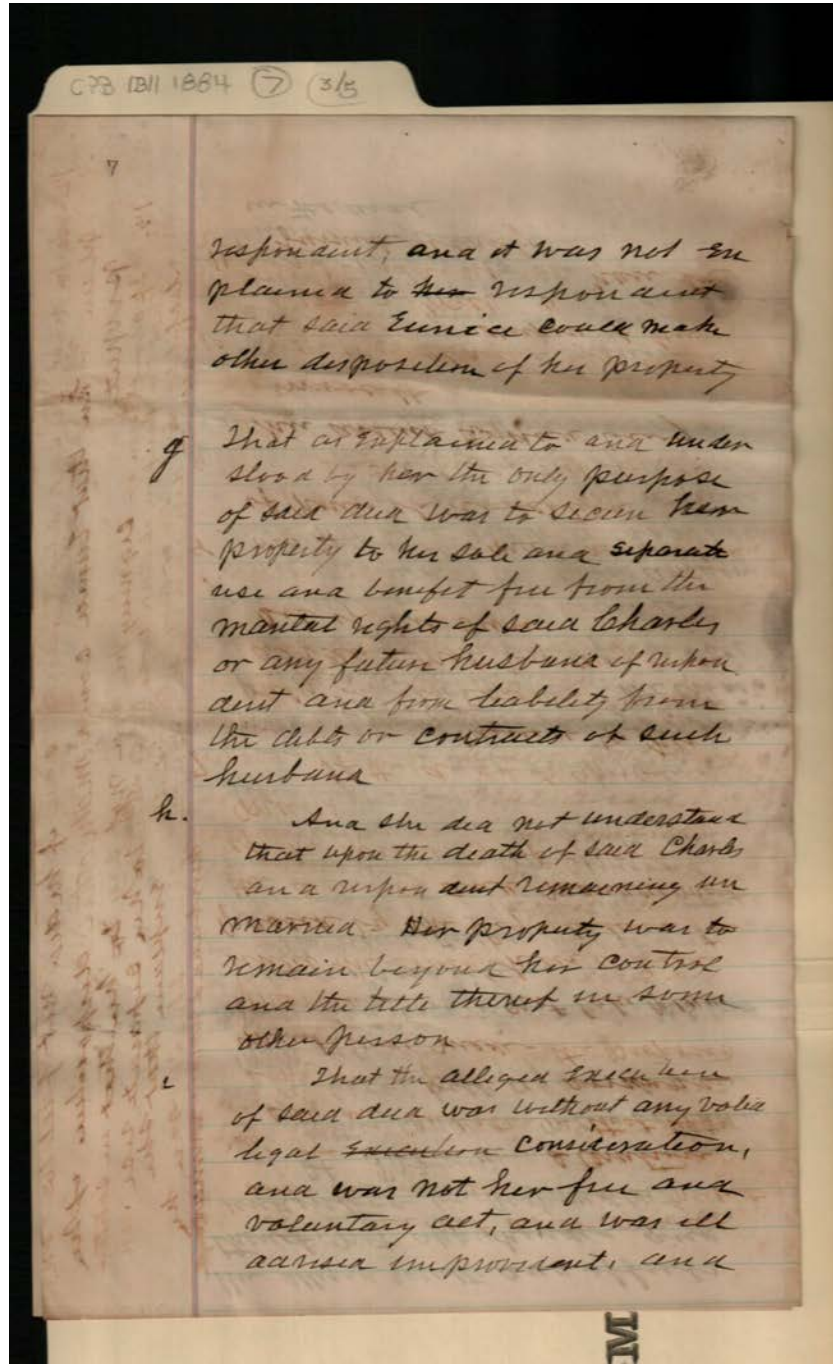 CPB 1811 1884 7 3/5
7
respondent, and it was not ex
plained to her respondent
that said Eunice could make
other disposition of her property
g That as explained to and under
stood by her the only purpose
of said deed was to secure her
property to her sole and separate
use and benefit free from the
marital rights of said Charles
or any future husband of respon
dent and from liability from
the debts or contracts of such
husband
h. And she did not understand
that upon the death of said Charles
and respondent remaining un
married. Her property was to
remain beyond her control
and the title thereof in some
other person
i That the alleged execution
of said deed was without any valid
legal Execution Consideration,
and was not her free and
voluntary act, and was ill
advised improvident, and
M